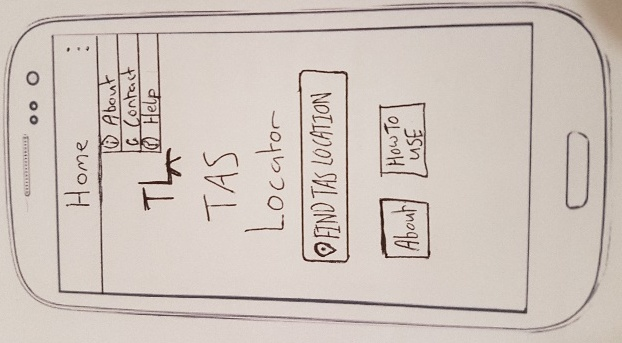 Home
About
Contact
Help
TLA
TAS
Locator
FIND TAS LOCATION
About
HOW TO
USE